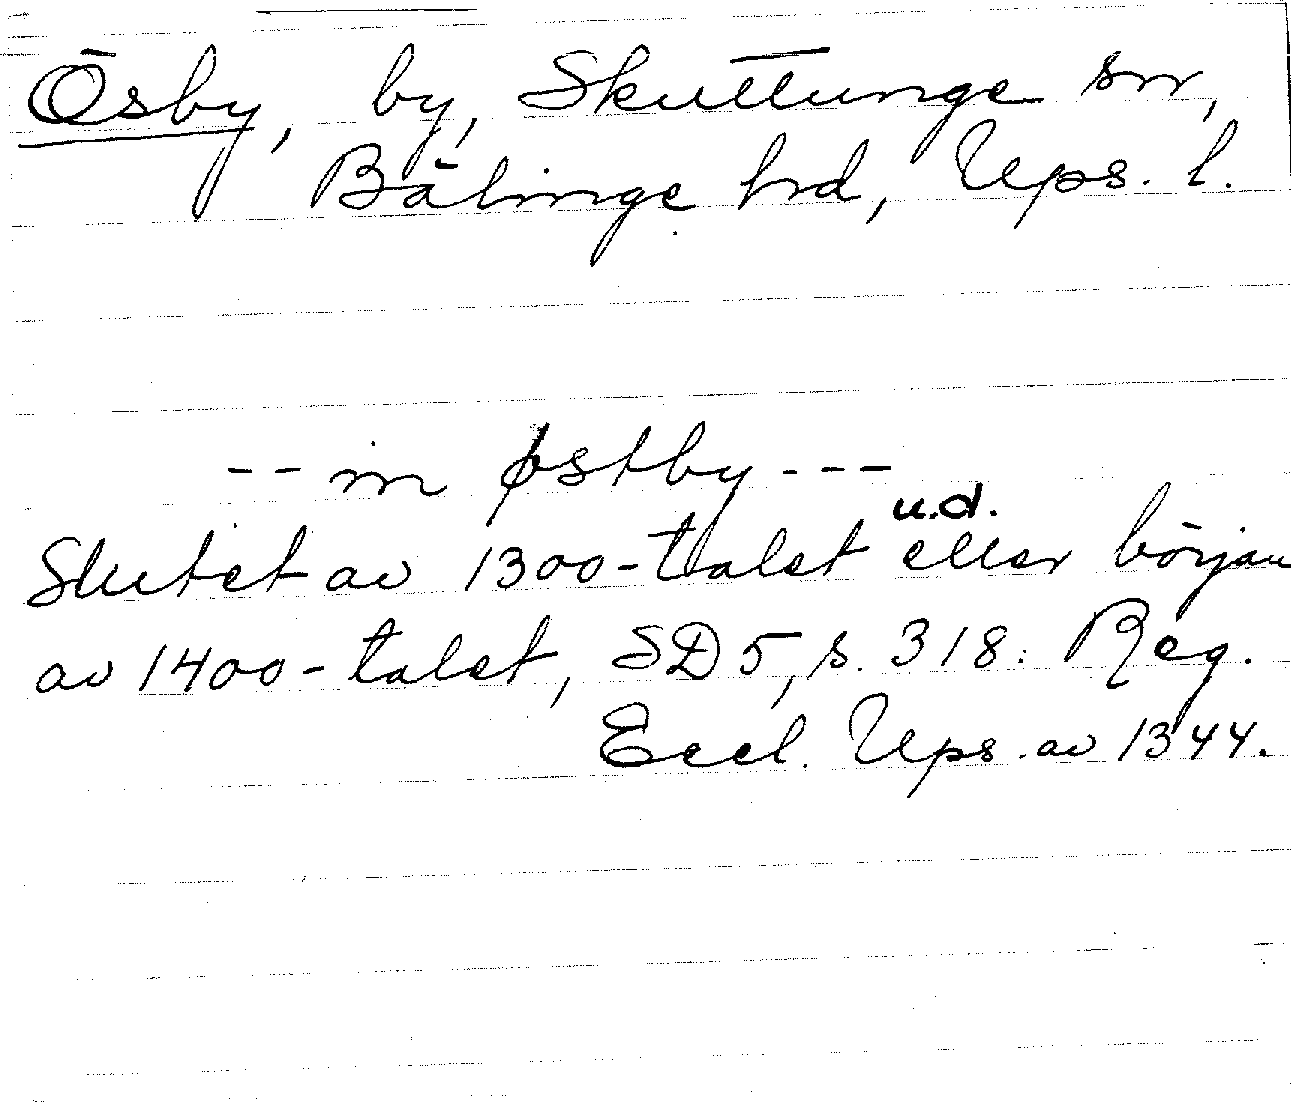 Ösby, by, Skuttunge sn,
Bälinge hd, Ups. l.
-- in østby ---
u.d.
Slutet av 1300-talet eller början
av 1400-talet, SD 5, s. 318: Reg.
Eccl. Ups. av 1344.